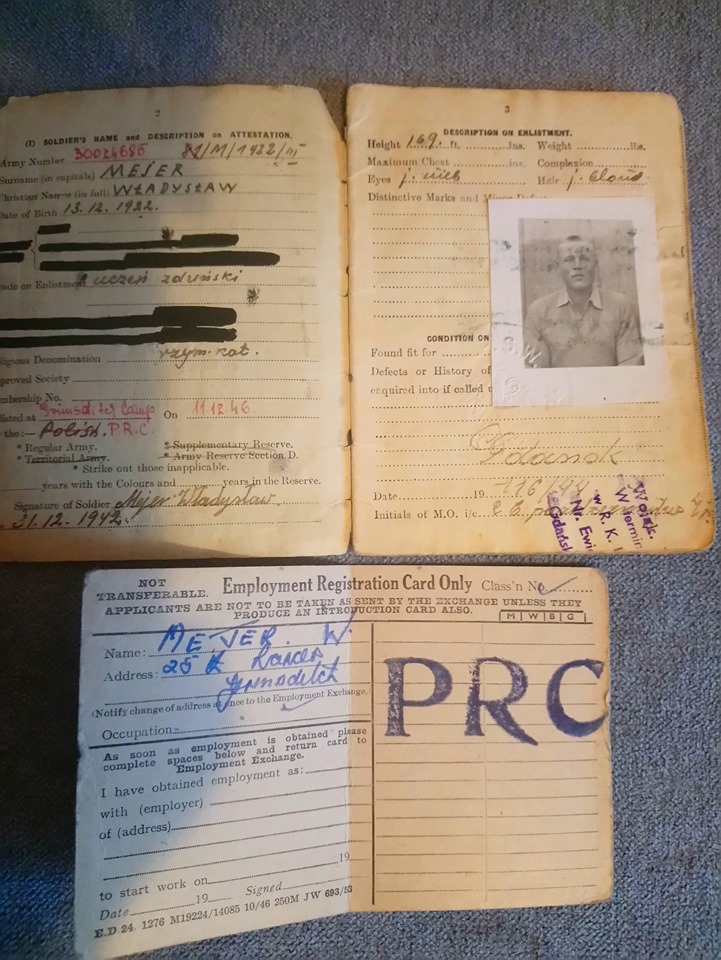 2
(I) SOLDIER'S NAME and DESCRIPTION on ATTESTATION.
Army Number 30024685 /M/1922/III
Surname (in capitals) MEJER
Christian Names (in full) WŁADYSŁAW
Date of Birth 13.12.1922.
ade on Enlistment uczeń zduński
ligious Denomination rzym. kat.
pproved Society
mbership No.
listed at Camp On 11.12.46.
the:— Polish P.R.C.
* Regular Army. * Supplementary Reserve.
* Territorial Army. * Army Reserve Section D.
* Strike out those inapplicable.
years with the Colours and years in the Reserve.
Signature of Soldier Mejer Władysław
31.12.1942
3
DESCRIPTION ON ENLISTMENT.
Height 169. ft. ins. Weight lbs.
Maximum Chest ins. Complexion
Eyes j. nieb Hair j. blond.
Distinctive Marks and Minor Defects
CONDITION ON
Found fit for
Defects or History of
enquired into if called u
Gdańsk
Date 19
Initials of M.O. i/c
Wojsk.
w R. K.
Nr. Ewi
Gdańsk
NOT TRANSFERABLE. Employment Registration Card Only Class'n No
APPLICANTS ARE NOT TO BE TAKEN AS SENT BY THE EXCHANGE UNLESS THEY
PRODUCE AN INTRODUCTION CARD ALSO. M W B G
Name: MEJER. W.
Address: 25
(Notify change of address at once to the Employment Exchange.)
Occupation:
As soon as employment is obtained please
complete spaces below and return card to
Employment Exchange.
I have obtained employment as:
with (employer)
of (address)
19
to start work on
Date 19 Signed
E.D.24. 1276 M19224/14085 10/46 250M JW 693/53
PRC